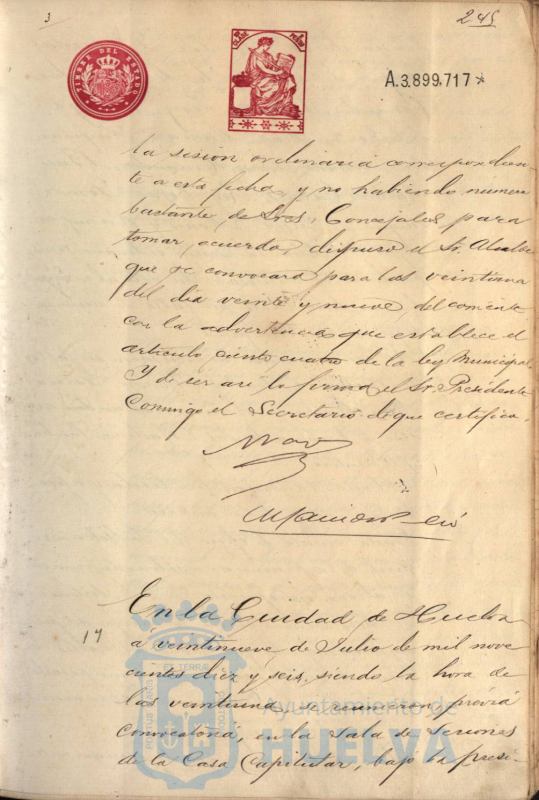 3
245
TIMBRE DEL ESTADO
A.3.899.717*
la sesión ordinaria correspondien-
te a esta fecha, y no habiendo numero
bastante de Sres. Concejales para
tomar acuerdo, dispuso el Sr. Alcalde
que se convocara para las veintiuna
del dia veinte y nueve del corriente
con la advertencia que establece el
artículo ciento cuatro de la ley Municipal.
Y de ser asi lo firma el Sr. Presidente
Conmigo el Secretario de que certifico.
En la Ciudad de Huelva
17
á veintinueve de Julio de mil nove
cientos diez y seis, siendo la hora de
las veintiuna se reunieron previa
convocatoria, en la Sala de Sesiones
de la Casa Capitular, bajo la presi-
Ayuntamiento de
HUELVA